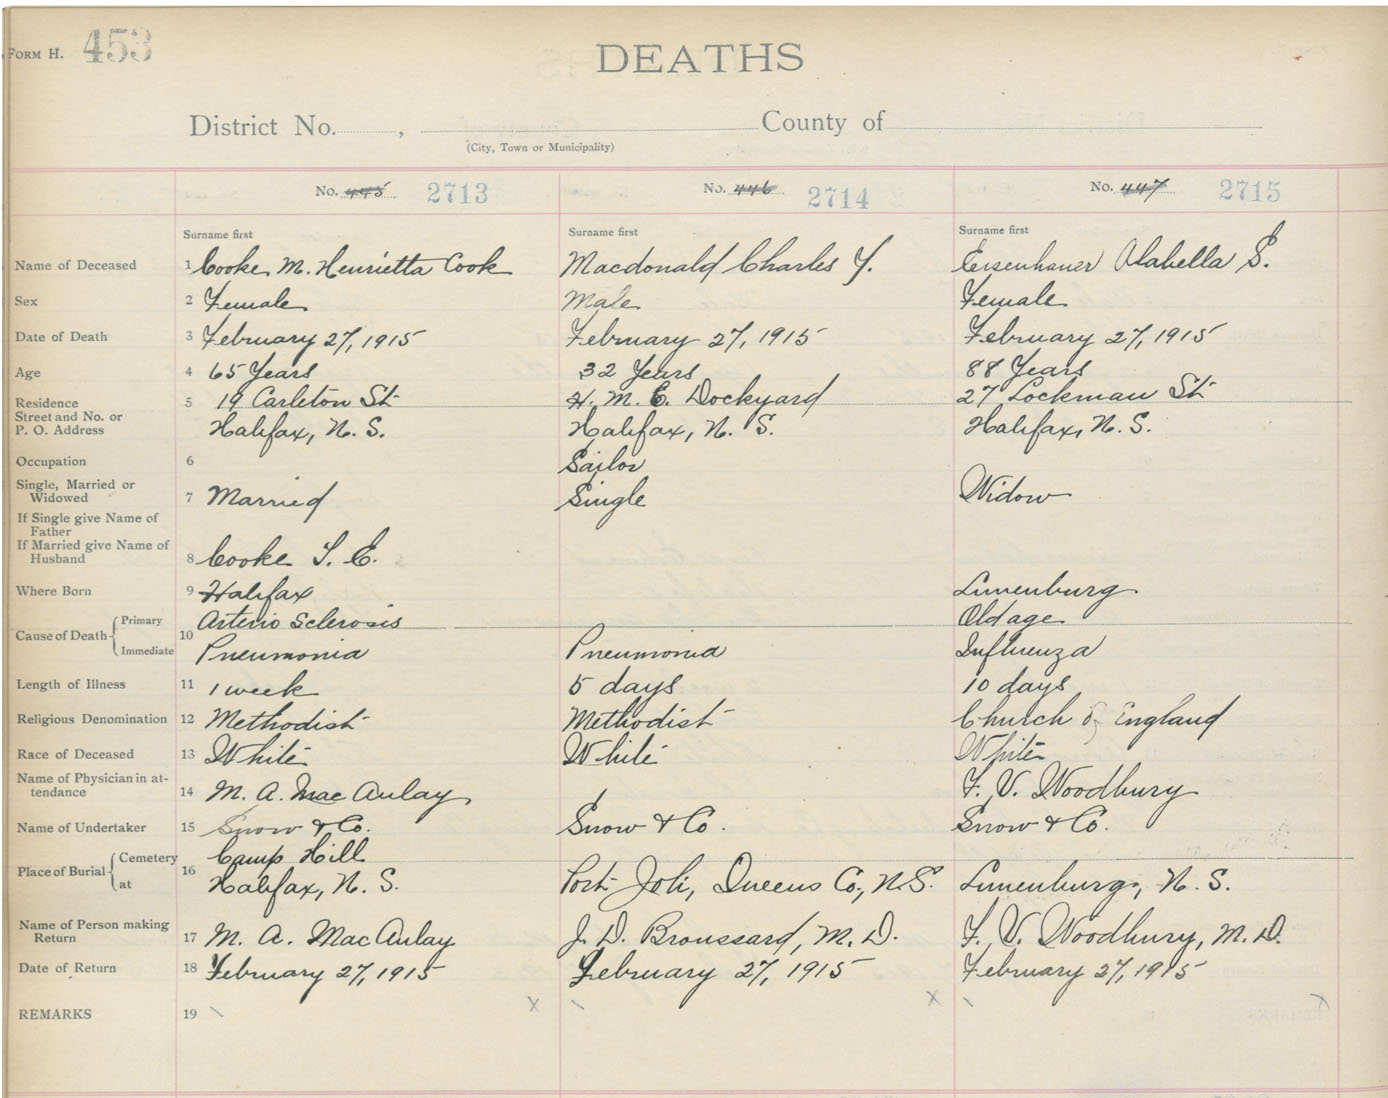 FORM H. 453
DEATHS
District No. , County of
(City, Town or Municipality)
No. 445 2713 No. 446 2714 No. 447 2715
Surname first Surname first Surname first
Name of Deceased 1 Cooke M. Henrietta Cook Macdonald Charles Y. Eisenhauer Alabella S.
Sex 2 Female Male Female
Date of Death 3 February 27, 1915 February 27, 1915 February 27, 1915
Age 4 65 Years 32 Years 88 Years
Residence 5 19 Carleton St H. M. C. Dockyard 27 Lockman St
Street and No. or
P. O. Address Halifax, N. S. Halifax, N. S. Halifax, N. S.
Occupation 6 Sailor
Single, Married or
Widowed 7 Married Single Widow
If Single give Name of
Father
If Married give Name of
Husband 8 Cooke T. E.
Where Born 9 Halifax Lunenburg
Cause of Death Primary 10 Arterio Sclerosis Old age
Immediate Pneumonia Pneumonia Influenza
Length of Illness 11 1 week 5 days 10 days
Religious Denomination 12 Methodist Methodist Church of England
Race of Deceased 13 White White White
Name of Physician in at-
tendance 14 M. A. MacAulay F. V. Woodbury
Name of Undertaker 15 Snow & Co. Snow & Co. Snow & Co.
Place of Burial Cemetery 16 Camp Hill
at Halifax, N. S. Port Joli, Queens Co, N.S. Lunenburg, N. S.
Name of Person making
Return 17 M. A. MacAulay J. D. Broussard, M. D. F. V. Woodbury, M. D.
Date of Return 18 February 27, 1915 February 27, 1915 February 27, 1915
REMARKS 19 \ X \ X \ X